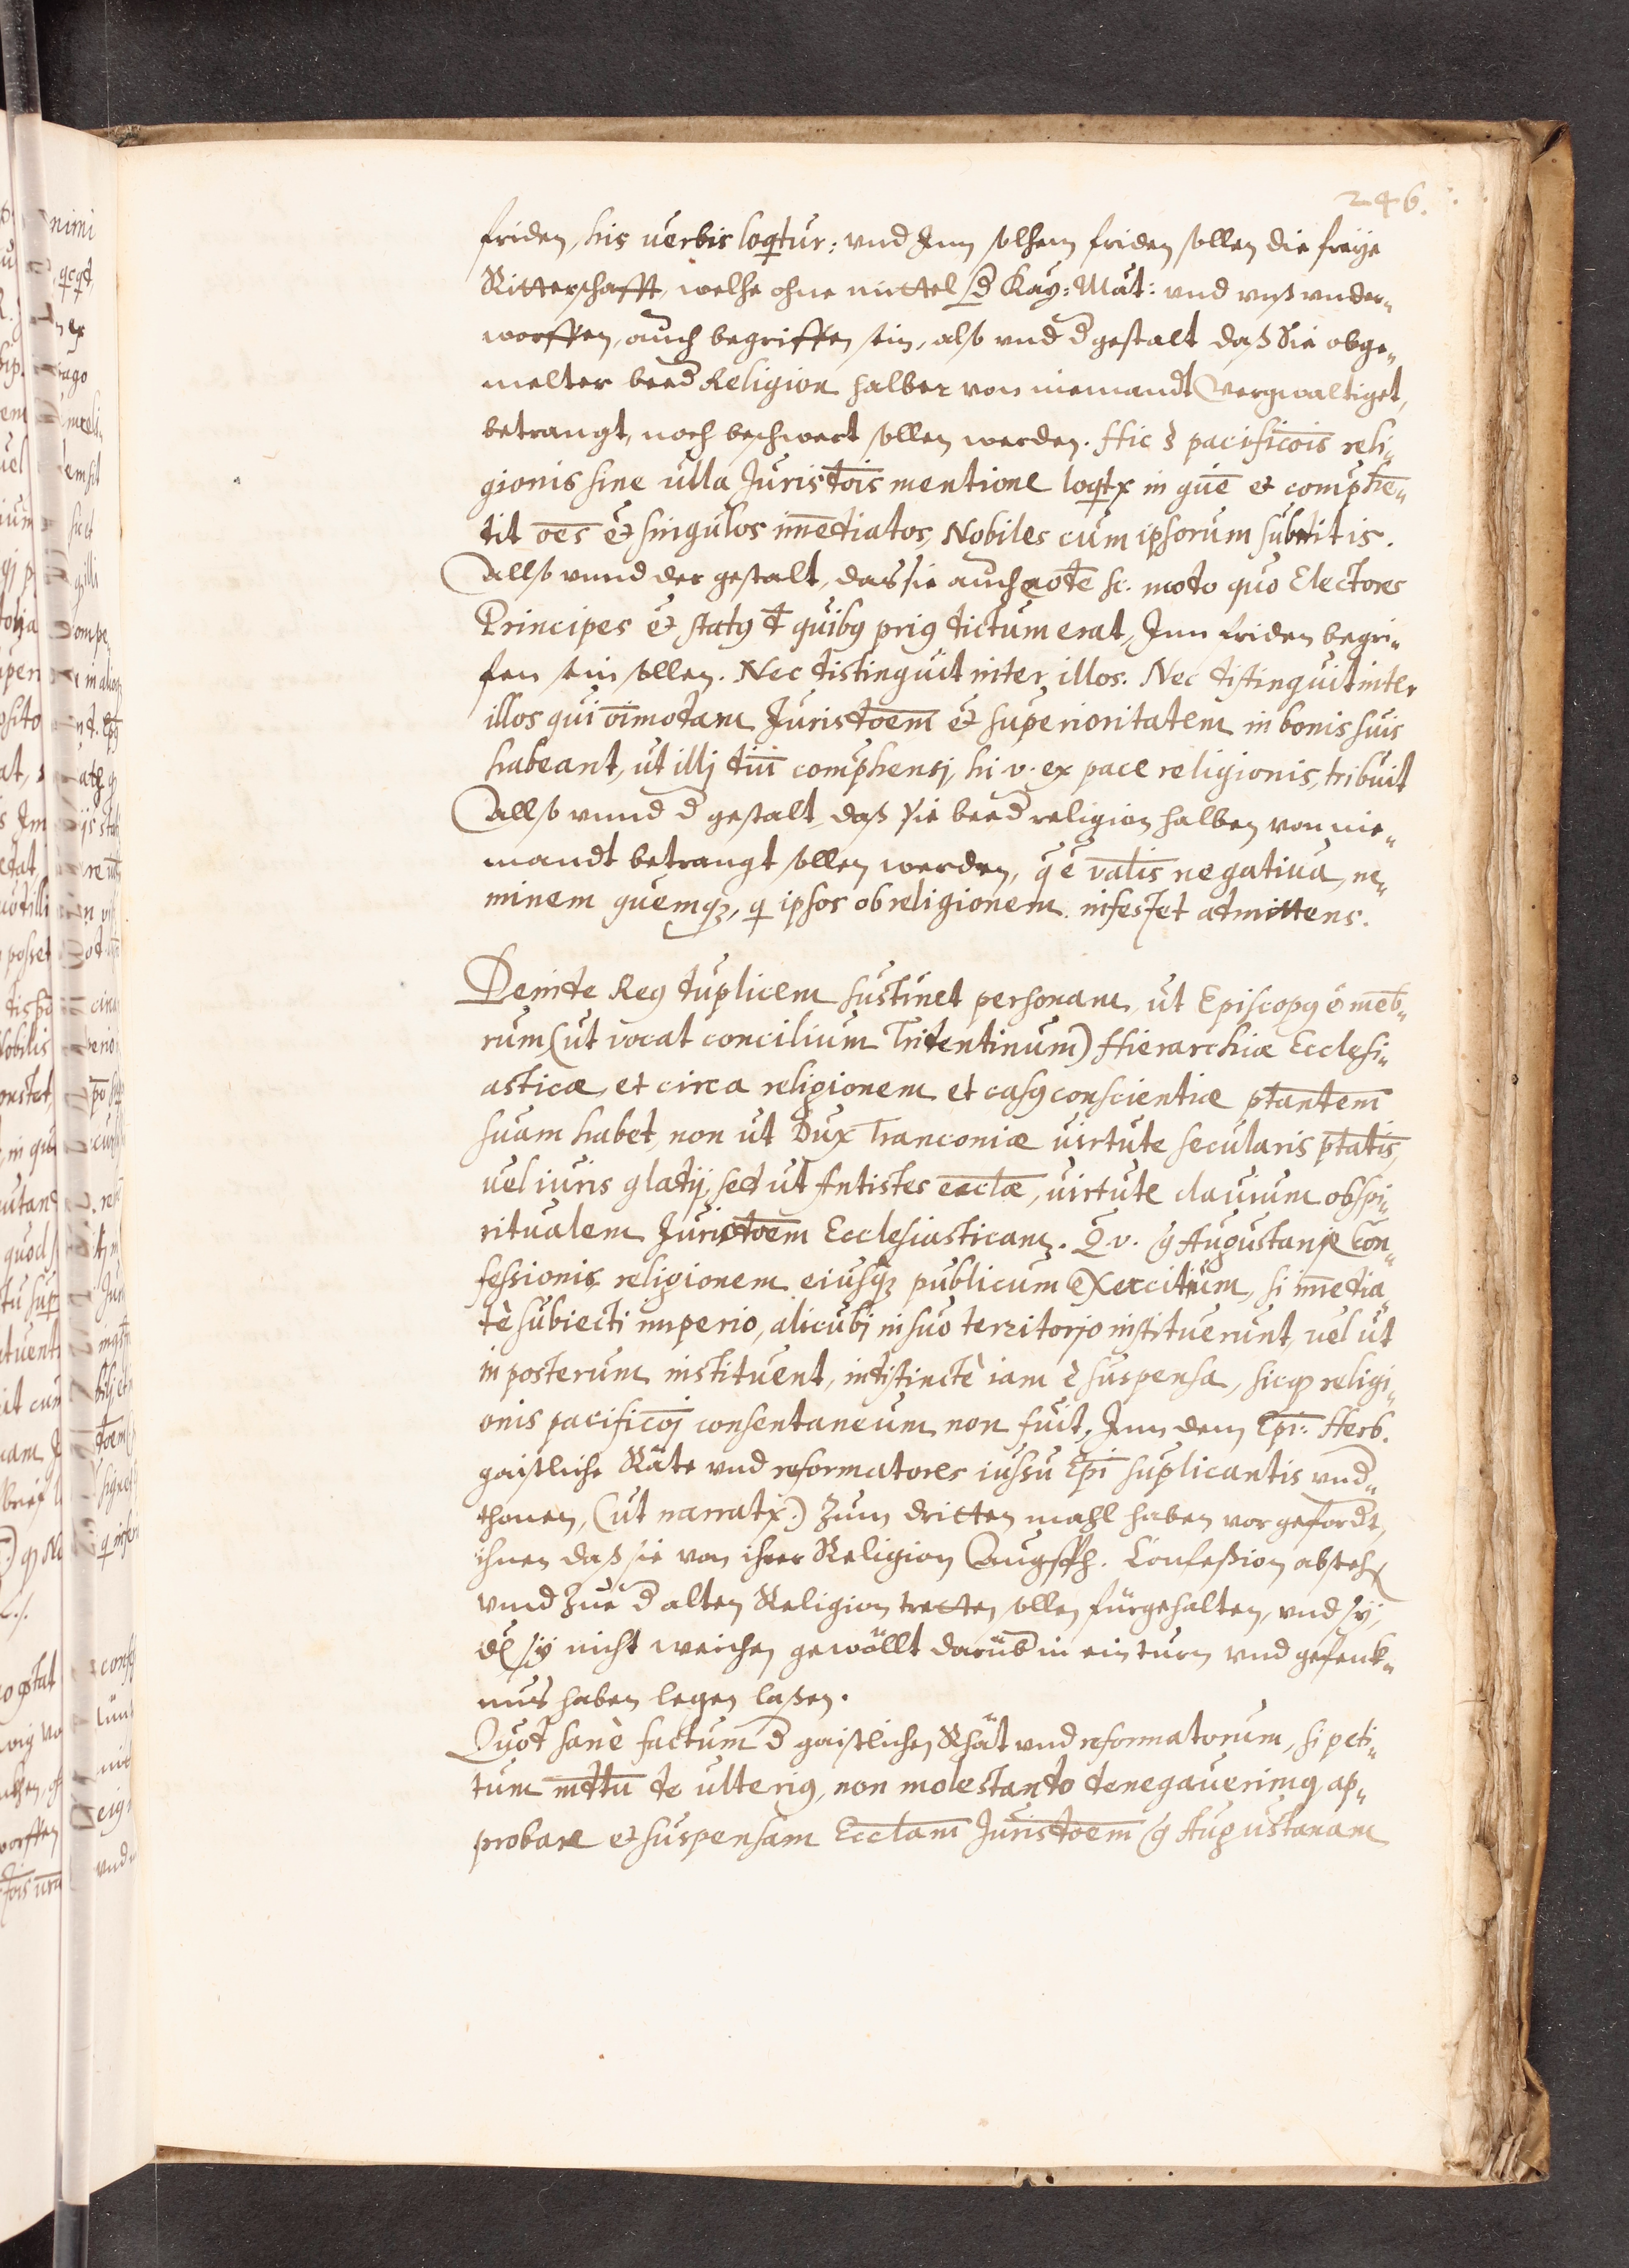 246.
friden, his uerbis loqtur: vnd Inn solhem friden sollen die freÿe
Ritterschafft, welhe ohne mittel d Kaÿ: Mät: vnd vnß vnder„
worffen, auch begriffen sein, also vnd d gestalt daß Sie obge„
melter beed Religion halber von niemandt vergwaltiget,
betrangt, noch beschwert sollen werden. Hic § pacificois reli„
gionis sine ulla Jurisdtois mentione loqtx in gne et comphen„
dit oes et singulos imediatos, Nobiles cum ipsorum subditis.
Allso vnnd der gestalt, das sie auch eode sc. modo quo Electores
Principes et statq d quibq priq dictum erat, Inn friden begri„
fen sein sollen. Nec distinguit inter illos. Nec distinguit inter
illos qui oimodam Jurisdtoem et superioritatem in bonis suis
habeant, ut illj comphensj, hi v. ex pace religionis, tribuit
Allso vnnd d gestalt, daß sie beed religion halben von nie„
mandt betrangt sollen werden, q e valis negatiua, ne„
minem quemqz, q ipsos ob religionem infestet admittens.
Deinde Req duplicem sustinet personam, ut Episcopq e meb„
rum (ut vocat concilium Tridentinum) Hierarchiæ Ecclesi„
asticæ, et circa religionem et casq conscientiæ ptantem
suam habet, non ut Dux Franconiæ uirtute secularis ptatis,
uel iuris gladij, sed ut Antistes ecclæ, uirtute clauium ob spi„
ritualem Jurisdtoem Ecclesiasticam. Q v. q Augustanæ Con„
fessionis religionem eiusqz publicum Exercitium, si imedia„
tè subiecti imperio, alicubj in suo territorjo instituerunt, uel ut
in posterum instituent, indistinctè iam e suspensa, sicqz religi„
onis pacificoj consentaneum non fuit, Inn dem Epi: Herb.
gaistliche Räte vnd reformatores iussu Epi suplicantis vnd„
thonen, (ut narratx.) Zum dritten mahl haben vorgefordt,
ihnen daß sie von ihrer Religion Augsp. Confeßion absteh
vnnd Zue d alten Religion tretten sollen fürgehalten, vnd sÿ,
dz sÿ nicht weichen gewöllt darüb in ein turn vnd gefenk„
nus haben legen laßen.
Quod sanè factum d gaistlichen Rhät vnd reformatorum, si peti„
tum mdtu de ulteriq, non molestando denegauerimq ap„
probare et suspensam Ecclam Jurisdtoem q Augustanam